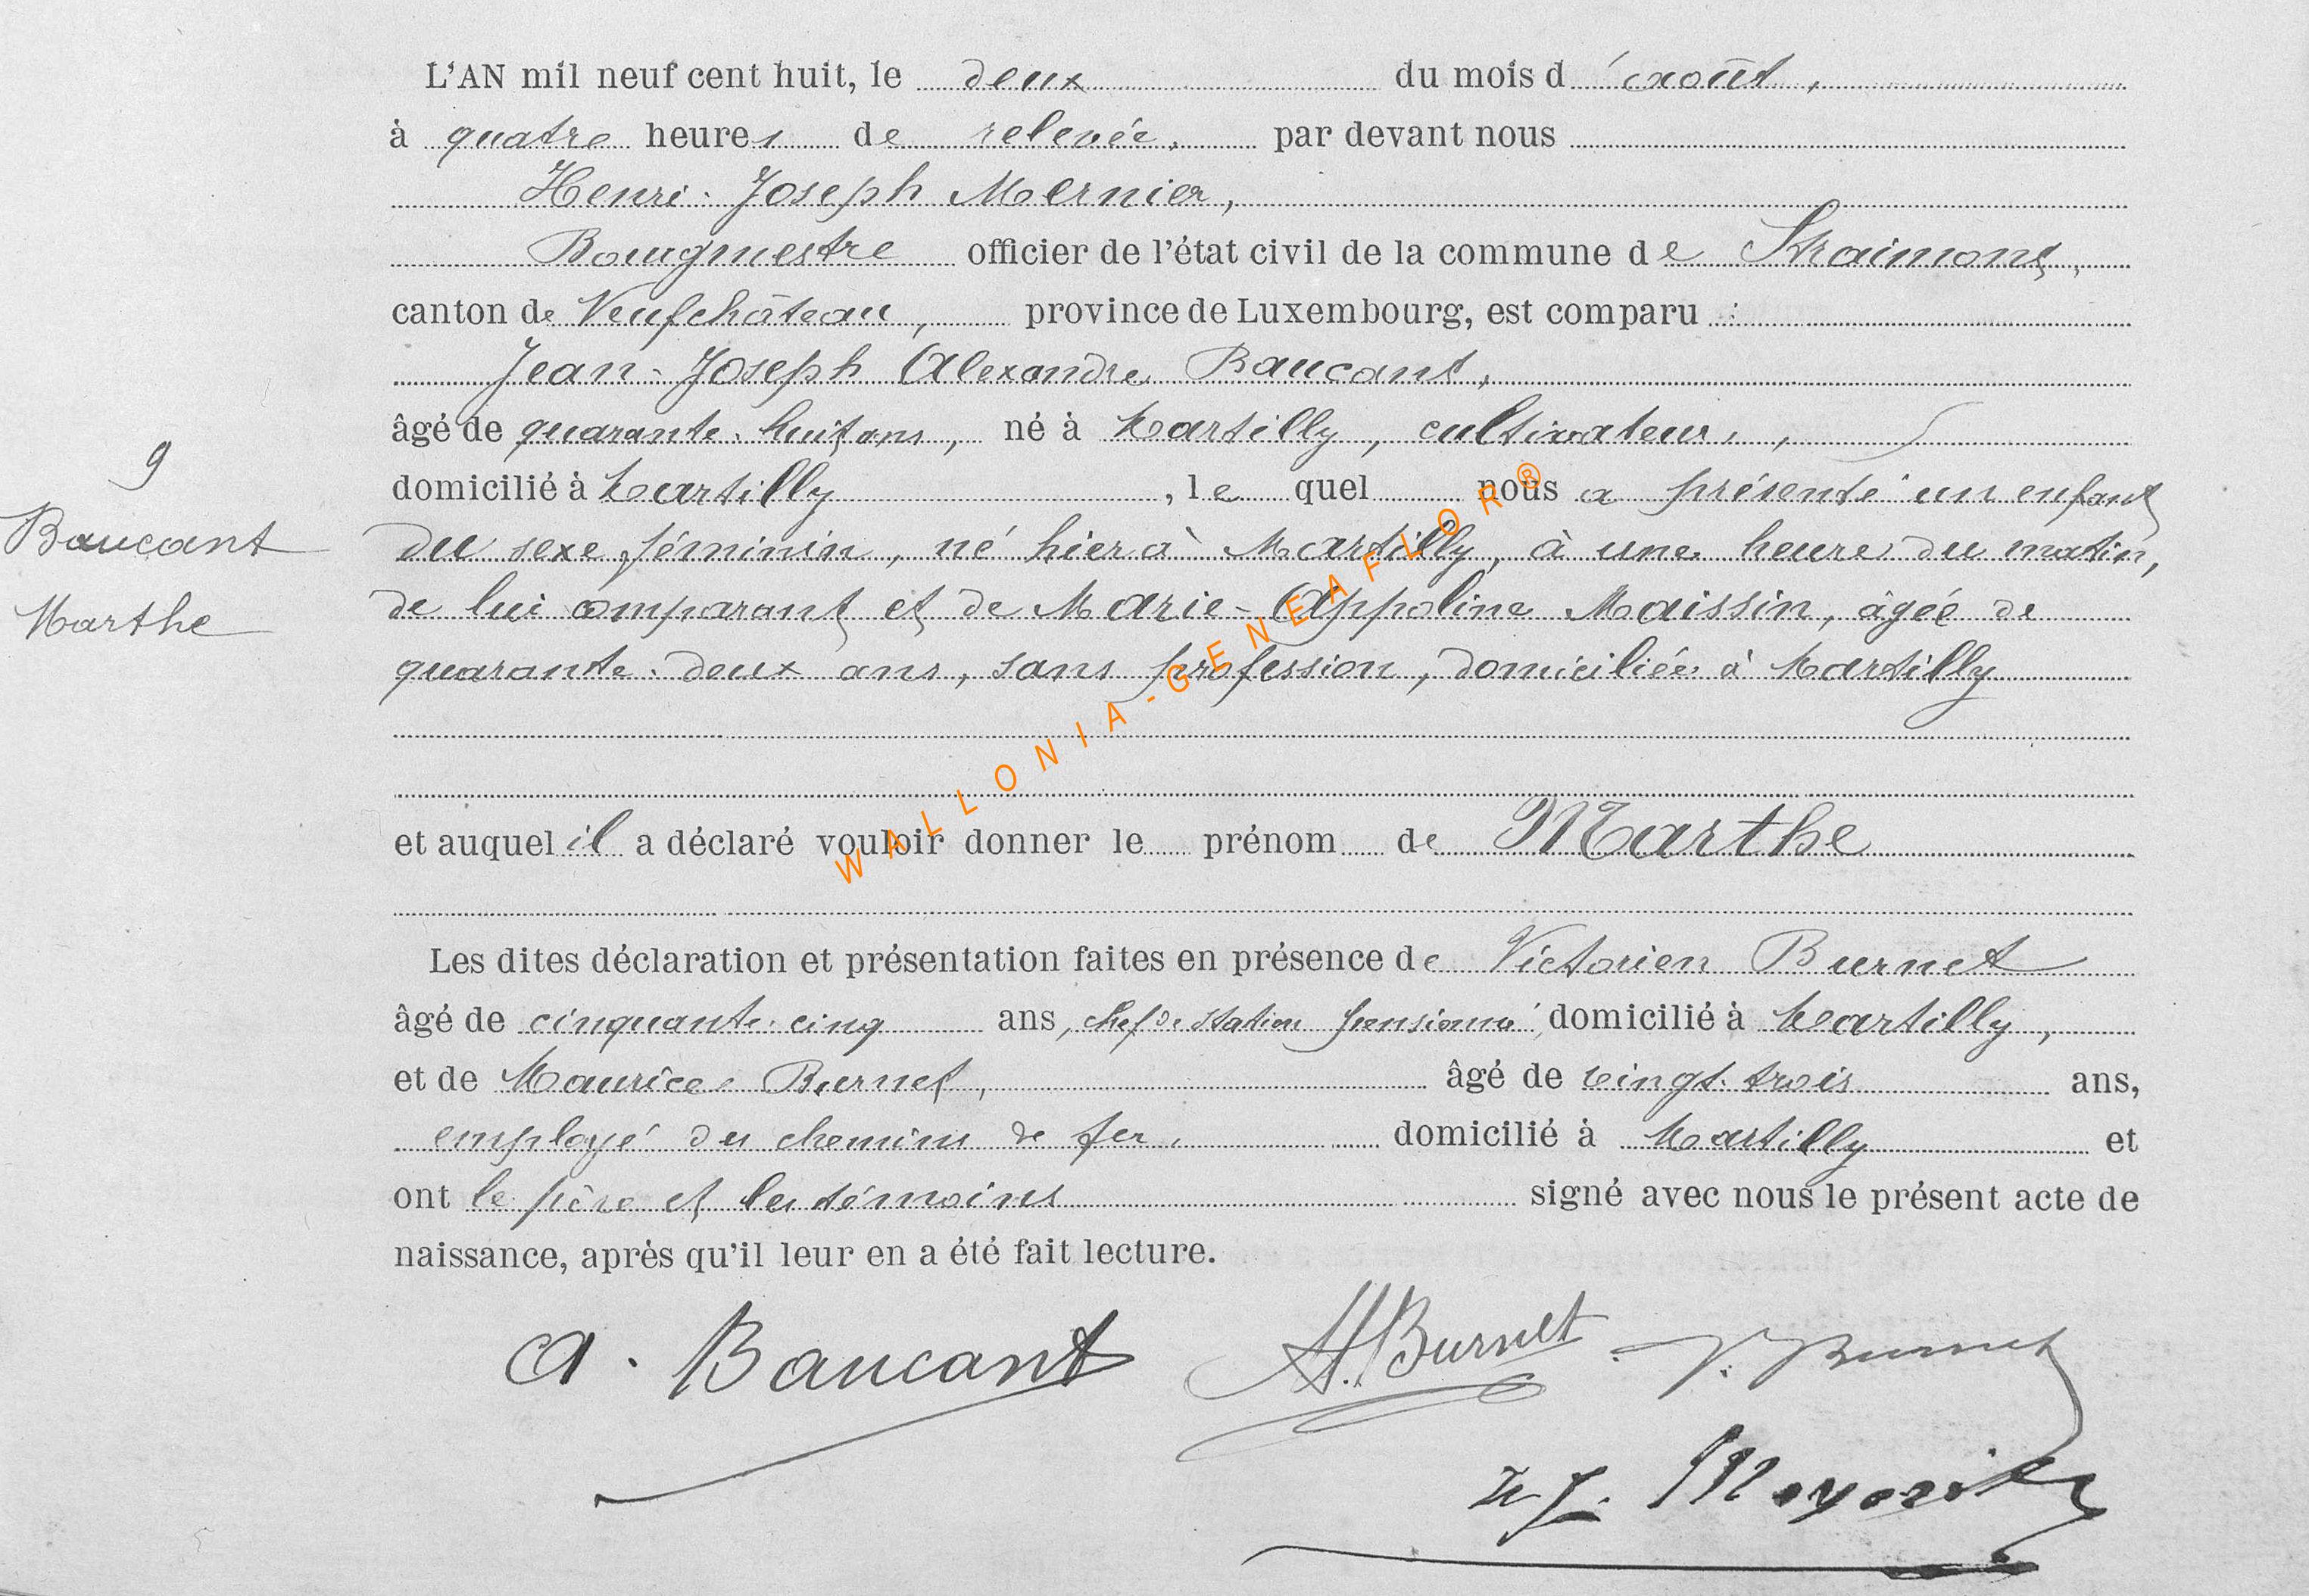 L'AN mil neuf cent huit, le deux du mois d'août,
à quatre heures de relevée, par devant nous
Henri-Joseph Mernier,
Bourgmestre officier de l'état civil de la commune de Straimont,
canton de Neufchâteau, province de Luxembourg, est comparu :
Jean-Joseph Alexandre Baucant,
âgé de quarante-huit ans, né à Martilly, cultivateur,
9
domicilié à Martilly, lequel nous a présenté un enfant
Baucant
du sexe féminin, né hier à Martilly, à une heure du matin,
Marthe
de lui comparant et de Marie-Appoline Maissin, âgée de
quarante-deux ans, sans profession, domiciliée à Martilly
et auquel il a déclaré vouloir donner le prénom de Marthe
Les dites déclaration et présentation faites en présence de Victorien Burnet
âgé de cinquante-cinq ans, chef de station pensionné, domicilié à Martilly,
et de Maurice Burnet, âgé de vingt-trois ans,
employé du chemin de fer, domicilié à Martilly et
ont le père et les témoins signé avec nous le présent acte de
naissance, après qu'il leur en a été fait lecture.
A. Baucant M. Burnet V. Burnet
WALLONIA-GENEAFLOR®